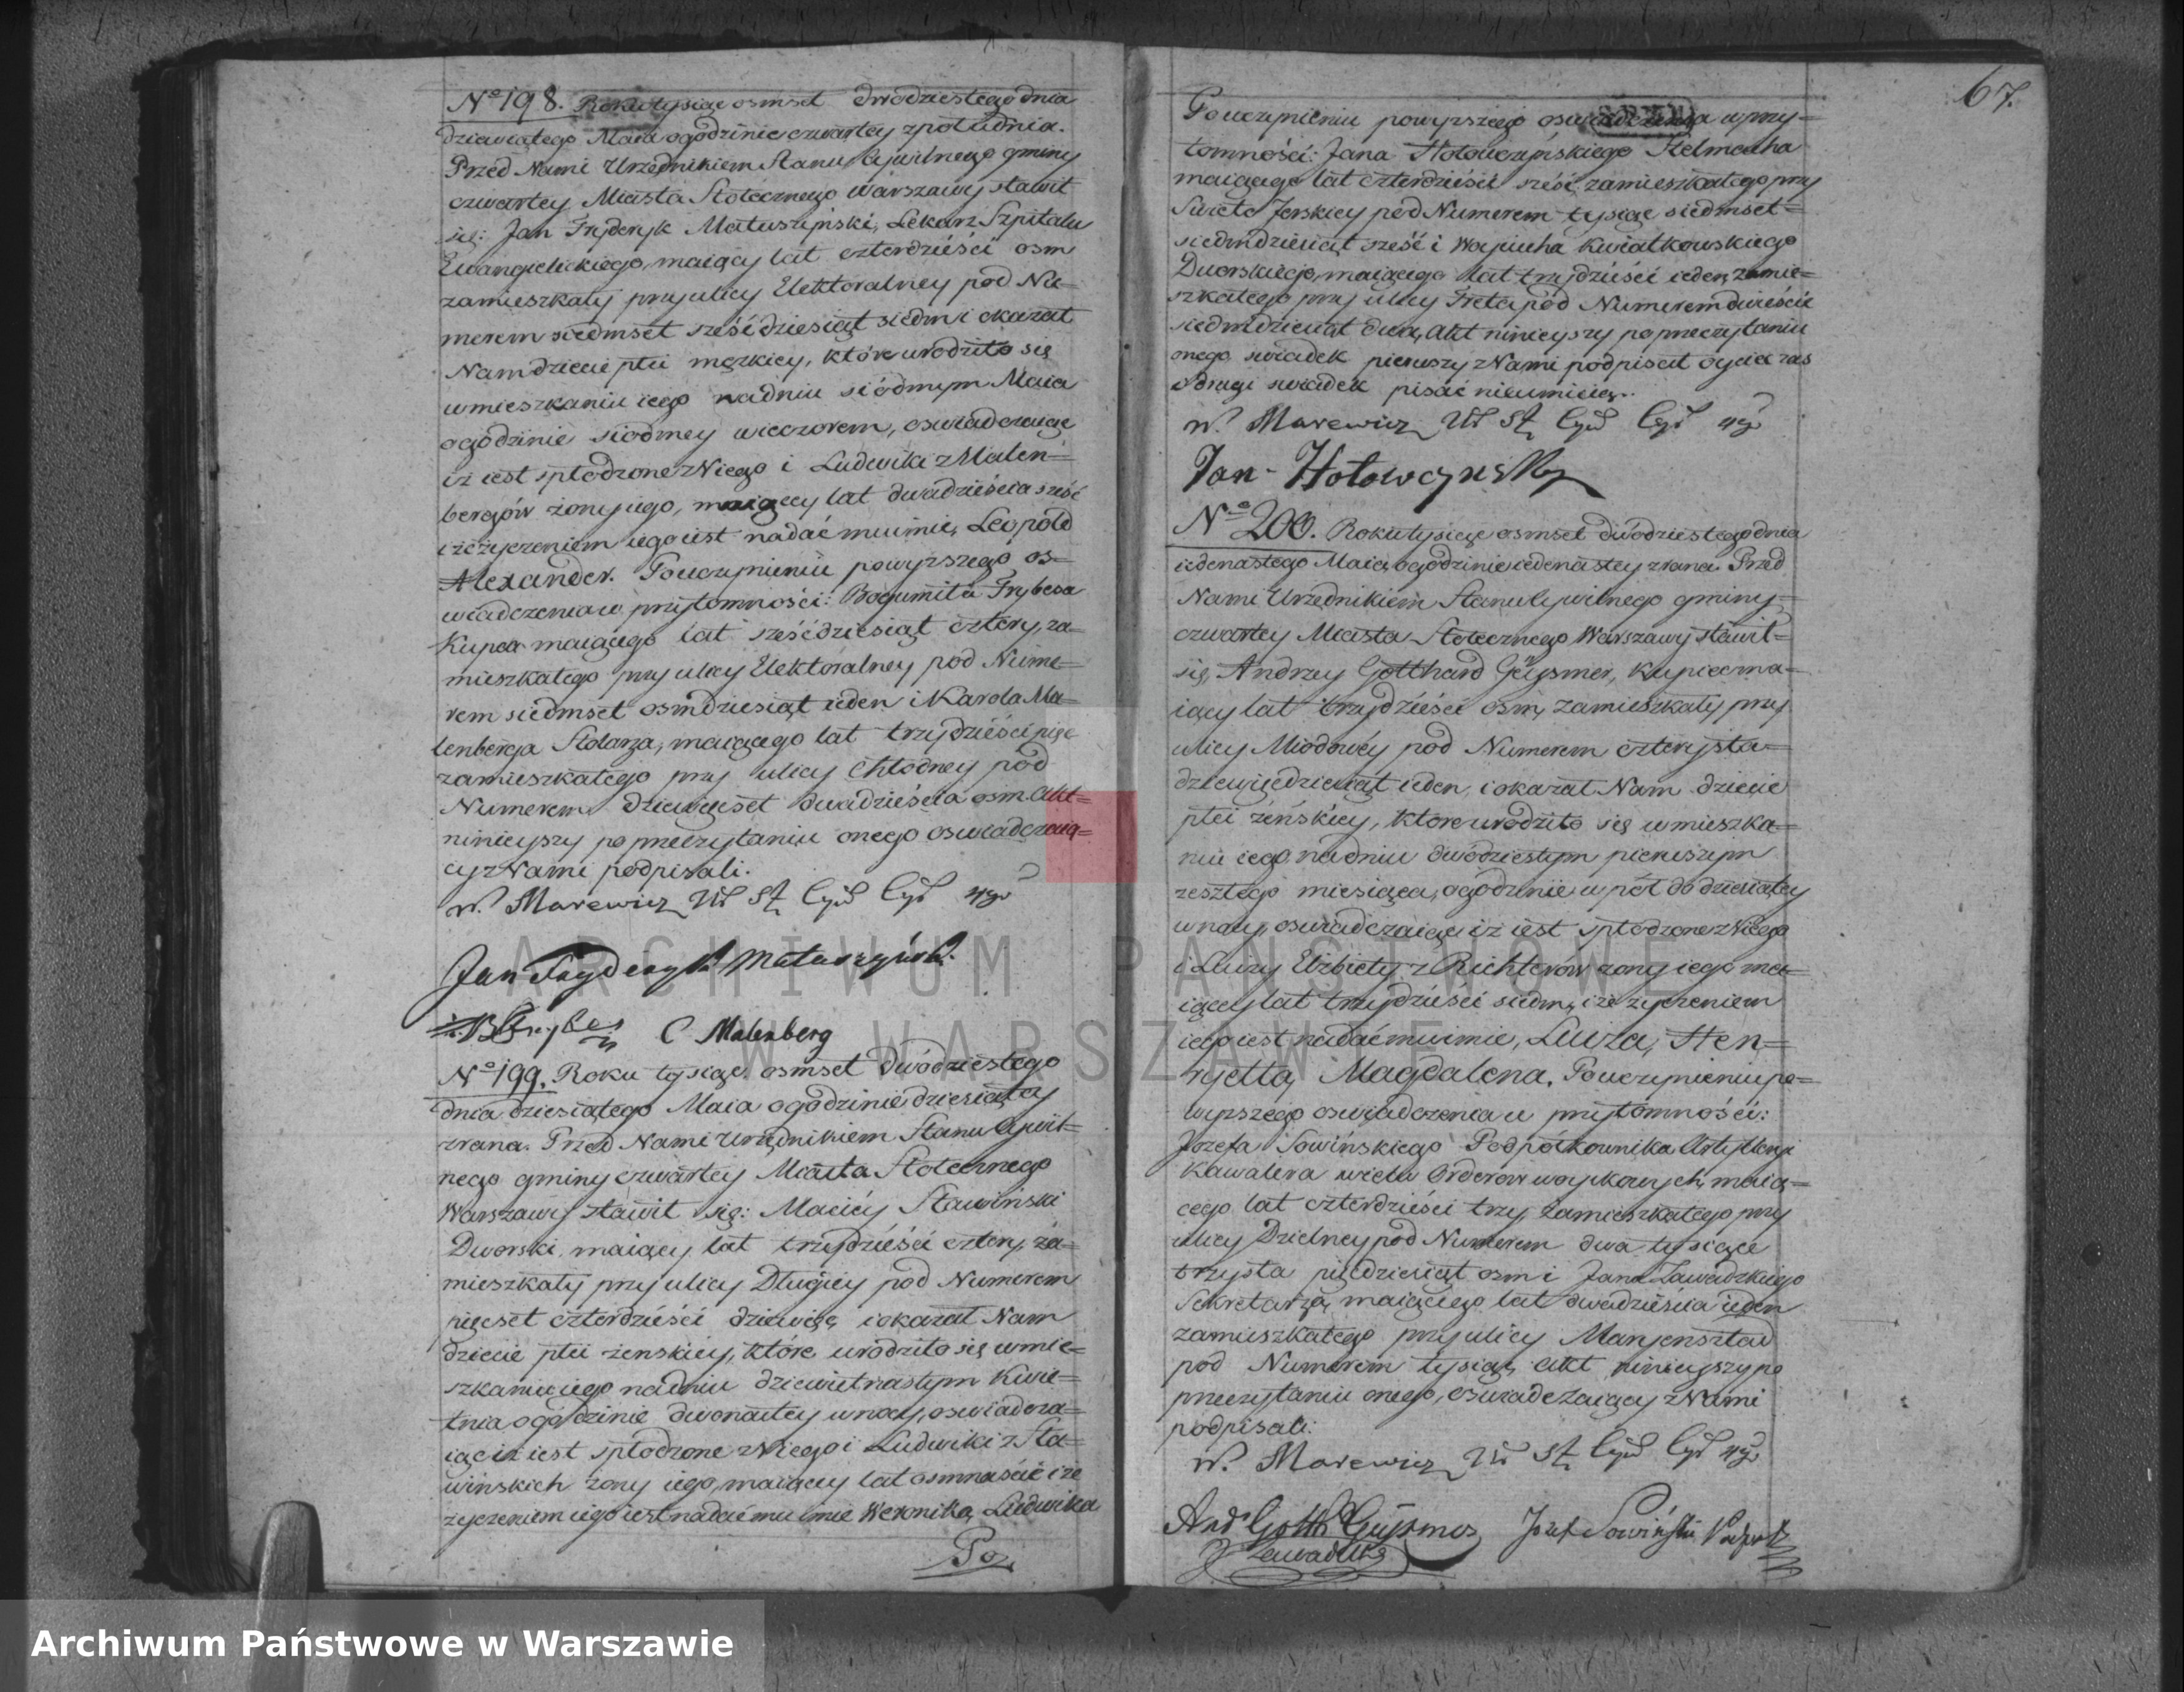 Nº 198. Roku tysiąc osmset dwódziestego dnia
dziewiątego Maia ogodzinie czwartey zpołudnia.
Przed Nami Urzędnikiem Stanu Cywilnego gminy
czwartey Miasta Stołecznego Warszawy stawił
się: Jan Fryderyk Matuszyński, Lekarz Szpitalu
Ewangielickiego, maiący lat czterdzieści osm
zamieszkały przy ulicy Elektoralney pod Nu=
merem siedmset sześćdziesiąt siedm i okazał
Nam dziecie płci męzkiey, które urodziło się
wmieszkaniu iego nadniu siódmym Maia
ogodzinie siodmey wieczorem, oswiadczaiąc
iż iest spłodzone zNiego i Ludwiki z Malen=
bergów żony jego, maiącey lat dwadzieścia sześć
i że życzeniem iego iest nadać mu imie, Leopold
Alexander. Po uczynieniu powyższego os=
wiadczenia w przytomności: Bogumiła Frybesa
Kupca maiącego lat sześćdziesiąt cztery, za=
mieszkałego przy ulicy Elektoralney pod Nume=
rem siedmset osmdziesiąt ieden i Karola Ma=
lenberga Stolarza, maiącego lat trzydzieści pięć
zamieszkałego przy ulicy Chłodney pod
Numerem dziewięset dwadzieścia osm. Akt=
ninieyszy po przeczytaniu onego oswiadczaią=
cy z Nami podpisali.
W. Marewicz
Jan Fryderyk Matuszyński.
B Frybes C Malenberg
Nº 199. Roku tysiąc osmset dwódziestego
dnia dziesiątego Maia ogodzinie dziesiątey
zrana. Przed Nami Urzędnikiem Stanu Cywil=
nego gminy czwartey Miasta Stołecznego
Warszawy stawił się: Maciéy Sławiński
Dworski, maiący lat trzydzieści cztery, za=
mieszkały przy ulicy Długiey pod Numerem
pięcset czterdzieści dziewięć i okazał Nam
dziecie płci żenskiey, które urodziło się wmie=
szkaniu iego nadniu dziewietnastym Kwie=
tnia ogodzinie dwonastey wnocy, oswiadcza=
iąc iż iest spłodzone zNiego i Ludwiki z Sła=
wińskich żony iego, maiącey lat osmnaście i że
życzeniem iego iest nadać mu imie Weronika, Ludwika
Po=
67.
Po uczynieniu powyższego oswiadczenia w przy=
tomności: Jana Hołowczyńskiego Stelmacha
maiącego lat czterdzieści sześć, zamieszkałego przy
Święto Jerskiey pod Numerem tysiąc siedmset=
siedmdziesiąt sześć i Woyciecha Kwiatkowskiego
Dworskiego, maiącego lat trzydzieści ieden, zamie=
szkałego przy ulicy Freta pod Numerem dwieście
siedmdziesiąt dwa, Akt ninieyszy po przeczytaniu
onego swiadek pierwszy z Nami podpisał oyciec zas
i drugi swiadek pisać nieumieią.
W. Marewicz
Jan Hołowczyński
Nº 200. Roku tysiąc osmset dwódziestego dnia
iedenastego Maia, ogodzinie iedenastey zrana. Przed
Nami Urzędnikiem Stanu Cywilnego gminy=
czwartey Miasta Stołecznego Warszawy stawił=
się, Andrzey Gotthard Geysmer, Kupiec ma=
iący lat trzydzieści osm, zamieszkały przy
ulicy Miodowéy pod Numerem czterysta=
dziewięćdziesiąt ieden, i okazał Nam dziecie
płci żeńskiey, które urodziło się w mieszka=
niu iego nadniu dwódziestym pierwszym
zeszłego miesiąca, ogodzinie w pół do dziesiątey
wnocy, oswiadczaiąc iż iest spłodzone zNiego
i Luizy Elżbiety z Richterów żony iego ma=
iącey lat trzydzieści siedm, i że życzeniem
iego iest nadać mu imie, Luiza, Hen=
ryetta, Magdalena. Po uczynieniu po=
wyższego oswiadczenia w przytomności:
Jozefa Sowińskiego Podpółkownika Artylleryi
Kawalera wielu Orderów woyskowych, maią=
cego lat czterdzieści trzy, zamieszkałego przy
ulicy Dzielney pod Numerem dwa tysiące
trzysta pięćdziesiąt osm i Jana Zawadzkiego
Sekretarza, maiącego lat dwadzieścia ieden
zamieszkałego przy ulicy Maryensztad
pod Numerem tysiąc, Akt ninieyszy po
przeczytaniu onego, oswiadczaiący z Nami
podpisali.
W. Marewicz
And Gotth Geysmer Jozef Sowiński Podpółk
J Zawadzki
ARCHIWUM PAŃSTWOWE
W WARSZAWIE
Archiwum Państwowe w Warszawie